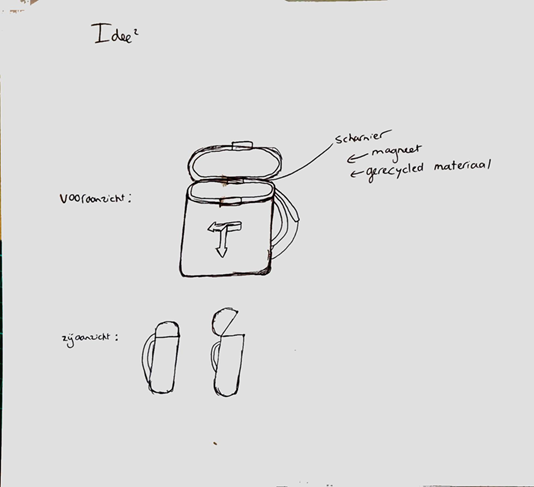 Idee²
scharnier
magneet
gerecycled materiaal
vooraanzicht:
zijaanzicht: